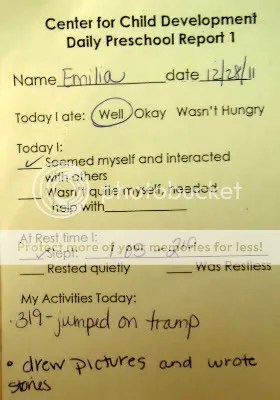 Center for Child Development
Daily Preschool Report 1
Name Emilia date 12/28/11
Today I ate: Well Okay Wasn't Hungry
Today I:
✓ Seemed myself and interacted
with others
Wasn't quite myself, needed
help with
photobucket
At Rest time I:
Protect more of your memories for less!
✓ Slept:
Rested quietly Was Restless
My Activities Today:
• 319 - jumped on tramp
• drew pictures and wrote
stories